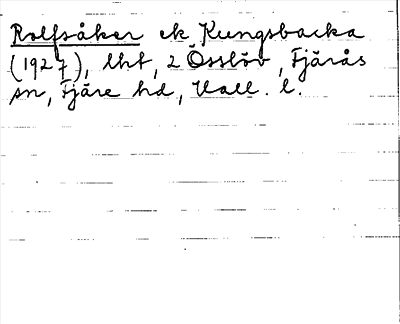 Rolfsåker ek Kungsbacka
(1927), lht, 2 Össlöv, Fjärås
sn, Fjäre hd, Hall. l.